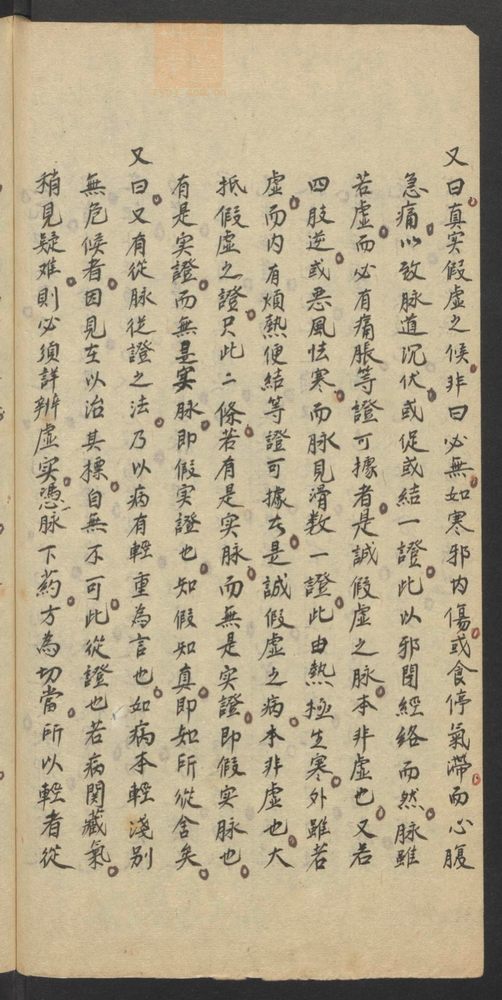 又曰真实假虚之候非曰必無如寒邪内傷或食停氣滯而心腹
急痛以致脉道沉伏或促或結一證此以邪閉經絡而然脉雖
若虛而必有痛脹等證可據者是誠假虛之脉本非虛也又若
四肢逆或惡風怯寒而脉見滑数一證此由熱極生寒外雖若
虛而内有煩熱便結等證可據者是誠假虛之病本非虛也大
抵假虛之證只此二條若有是实脉而無是实證即假实脉也
有是实證而無是实脉即假实證也知假知真即如所從舍矣
又曰又有從脉從證之法乃以病有輕重為言也如病本輕淺别
無危候者因見在以治其標自無不可此從證也若病関藏氣
稍見疑难則必須詳辨虛实憑脉下药方為切當所以輕者從